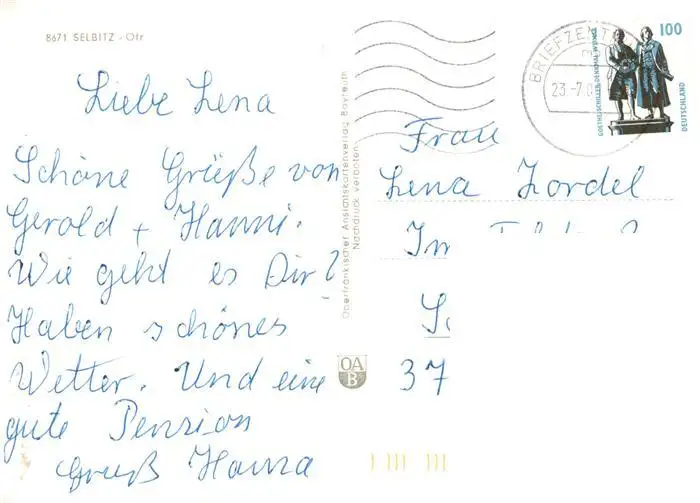 8671 SELBITZ - Ofr
Liebe Lena
Schöne Grüße von
Gerold + Hanni.
Wie geht es Dir?
Haben schönes
Wetter. Und eine
gute Pension
Gruß Hanna
Oberfränkischer Ansichtskartenverlag Bayreuth
Nachdruck verboten
OA
B
BRIEFZENT
23.-7.0
100
GOETHE-SCHILLER-DENKMAL WEIMAR
DEUTSCHLAND
Frau
Lena Zordel
Im
37